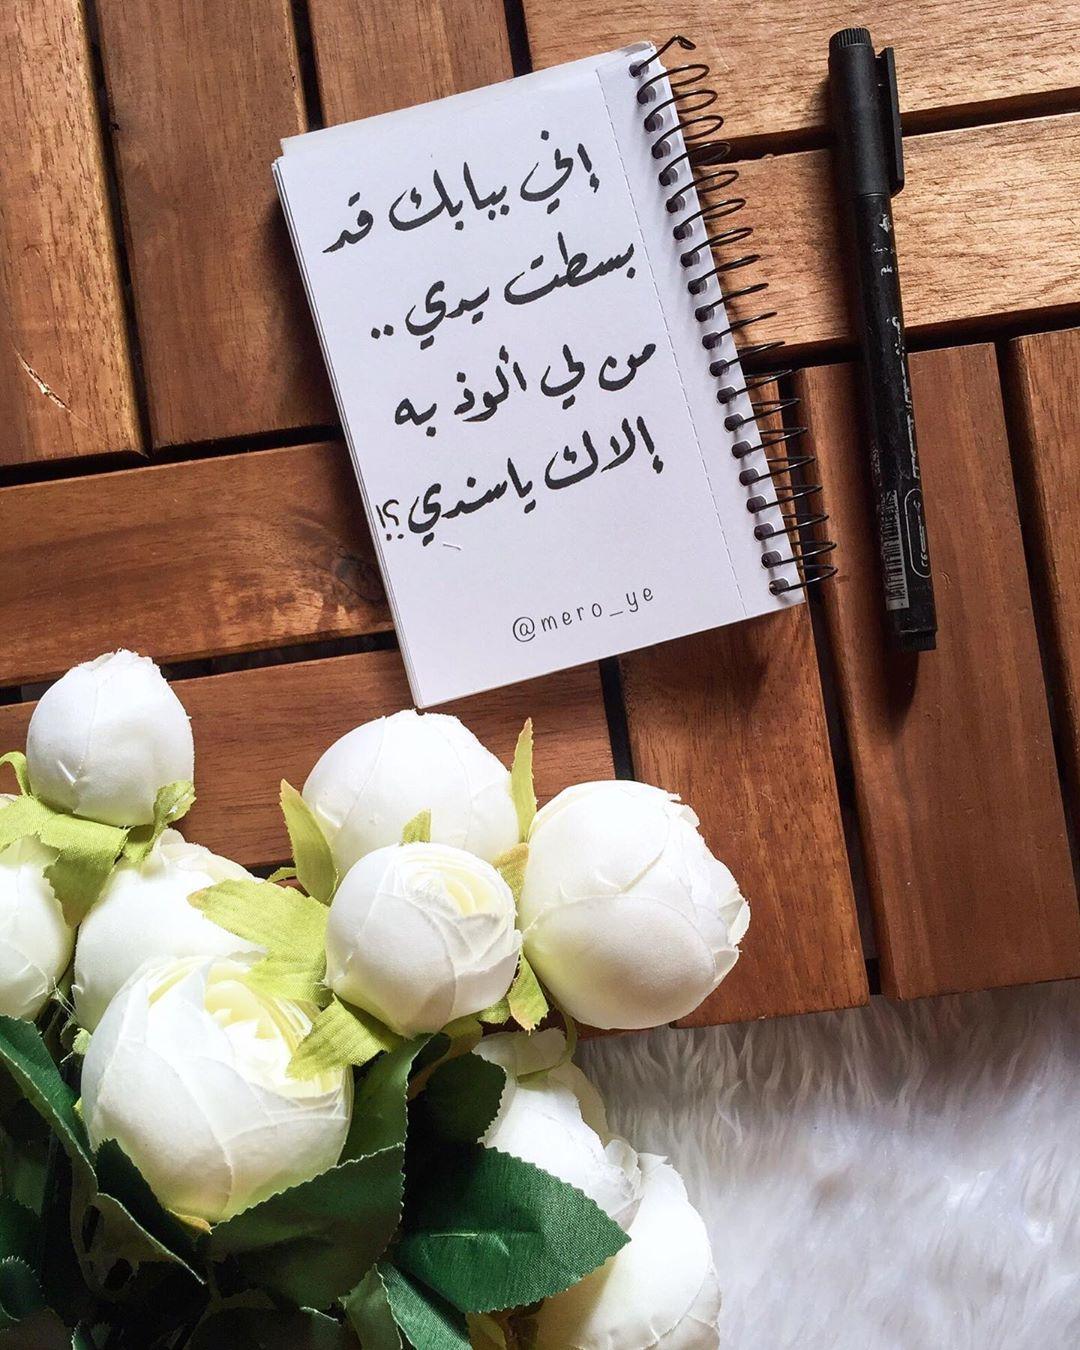 إني ببابك قد
بسطت يدي ..
من لي ألوذ به
إلاك ياسندي ؟!
@mero_ye